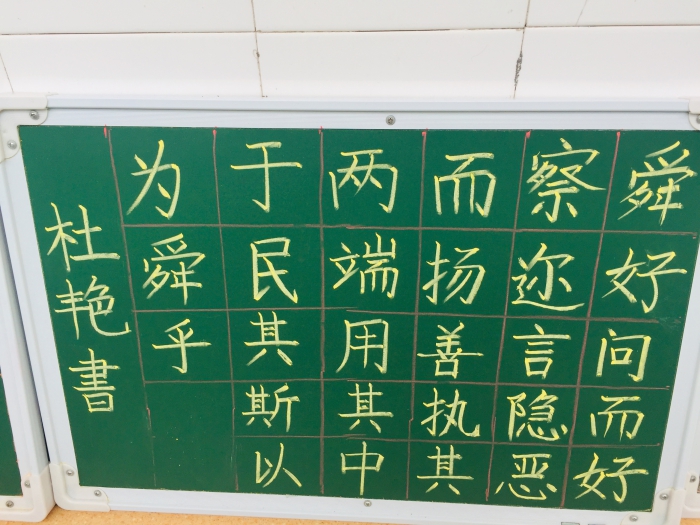 舜好问而好
察迩言隐恶
而扬善执其
两端用其中
于民其斯以
为舜乎
杜艳書